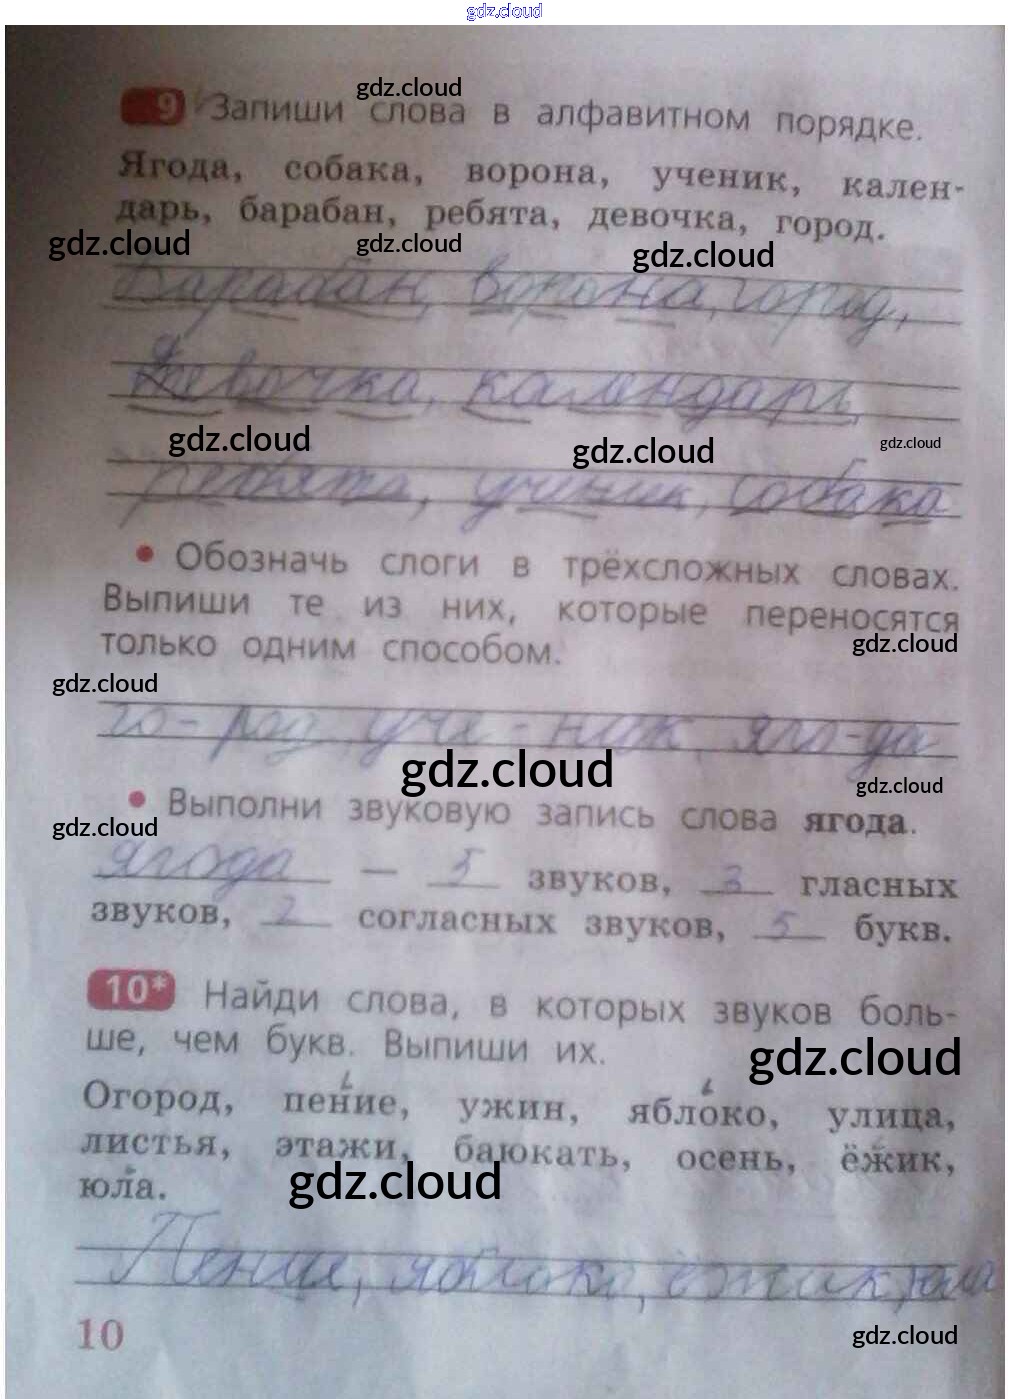 gdz.cloud
gdz.cloud
9 Запиши слова в алфавитном порядке.
Ягода, собака, ворона, ученик, кален-
дарь, барабан, ребята, девочка, город.
gdz.cloud gdz.cloud gdz.cloud
Барабан, ворона, город,
девочка, календарь,
gdz.cloud gdz.cloud gdz.cloud
ребята, ученик, собака
• Обозначь слоги в трёхсложных словах.
Выпиши те из них, которые переносятся
только одним способом.
gdz.cloud
gdz.cloud
го-род уче-ник, яго-да
gdz.cloud gdz.cloud
• Выполни звуковую запись слова ягода.
gdz.cloud
ягода — 5 звуков, 3 гласных
звуков, 2 согласных звуков, 5 букв.
10* Найди слова, в которых звуков боль-
ше, чем букв. Выпиши их.
gdz.cloud
Огород, пение, ужин, яблоко, улица,
листья, этажи, баюкать, осень, ёжик,
юла.
gdz.cloud
Пение, яблоко, ёжик, юла
10
gdz.cloud